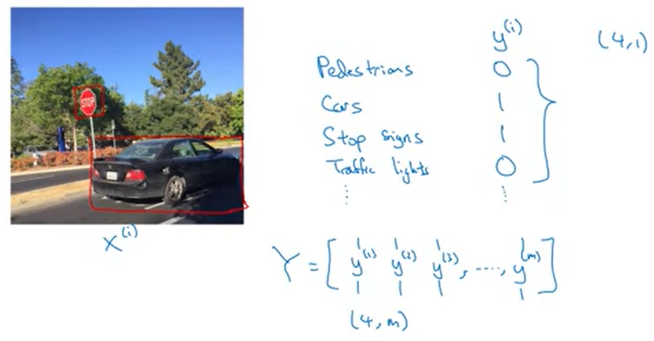 STOP
y^(i)
(4,1)
Pedestrians 0
Cars 1
Stop signs 1
Traffic lights 0
⋮ ⋮
x^(i)
Y = [ y^(1) y^(2) y^(3), ...., y^(m) ]
(4,m)